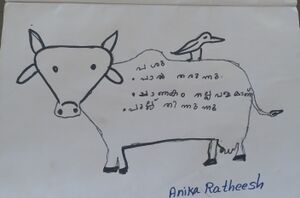 പശു
• പാൽ തരുന്നു.
• ചാണകം നല്ലവളമാണ്
• പുല്ല് തിന്നുന്നു
Anika Ratheesh